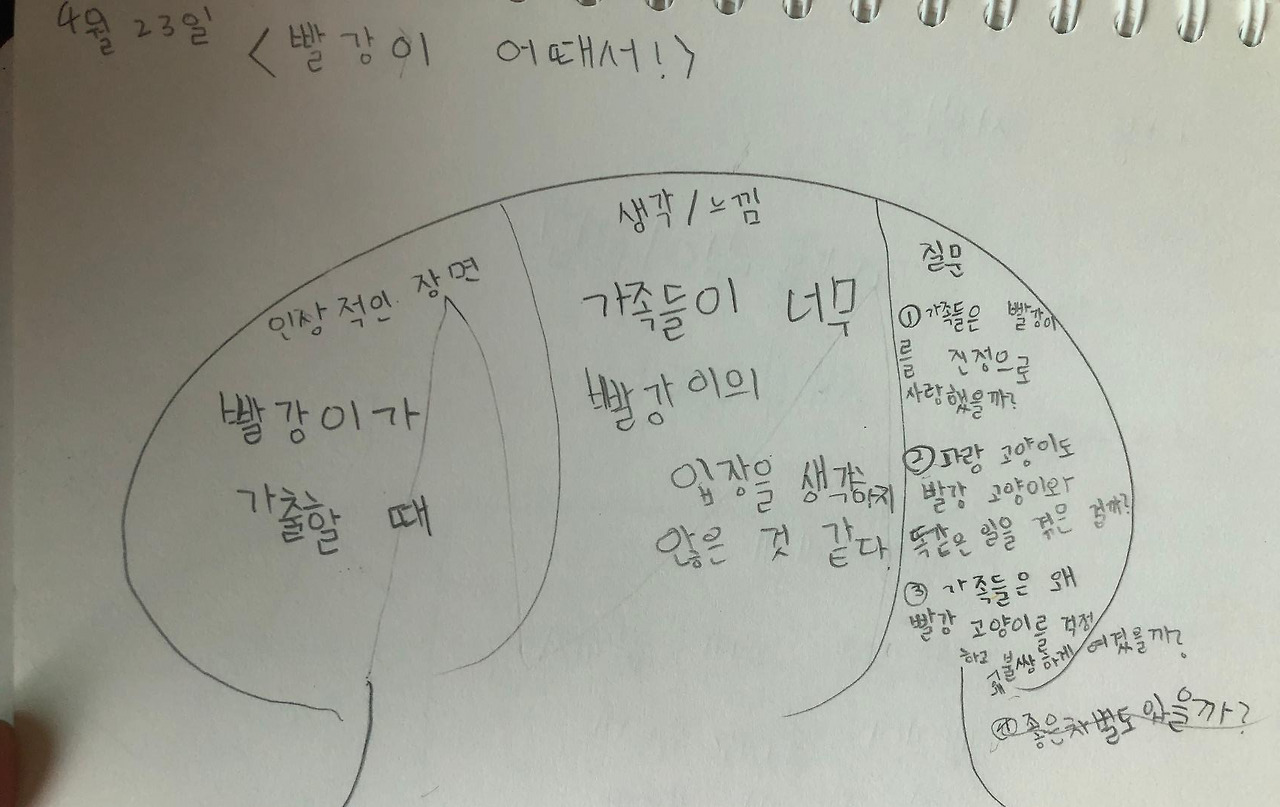 4월 23일
<빨강이 어때서!>
인상적인 장면
빨강이가
가출할 때
생각/느낌
가족들이 너무
빨강이의
입장을 생각하지
않은 것 같다.
질문
① 가족들은 빨강이
를 진정으로
사랑했을까?
② 파랑 고양이도
빨강 고양이와
똑같은 일을 겪은 걸까?
③ 가족들은 왜
빨강 고양이를 걱정
하고 불쌍하게 여겼을까?
왜
④ 좋은차별도 있을까?